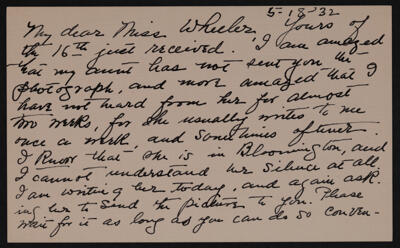 5-18-32
My dear Miss Wheeler, Yours of
the 16th just received. I am amazed
that my aunt has not sent you the
photograph, and more amazed that I
have not heard from her for almost
two weeks, for she usually writes to me
once a week, and sometimes oftener.
I know that she is in Bloomington, and
I cannot understand her silence at all.
I am writing her today, and again ask-
ing her to send the picture to you. Please
wait for it as long as you can do so conven-